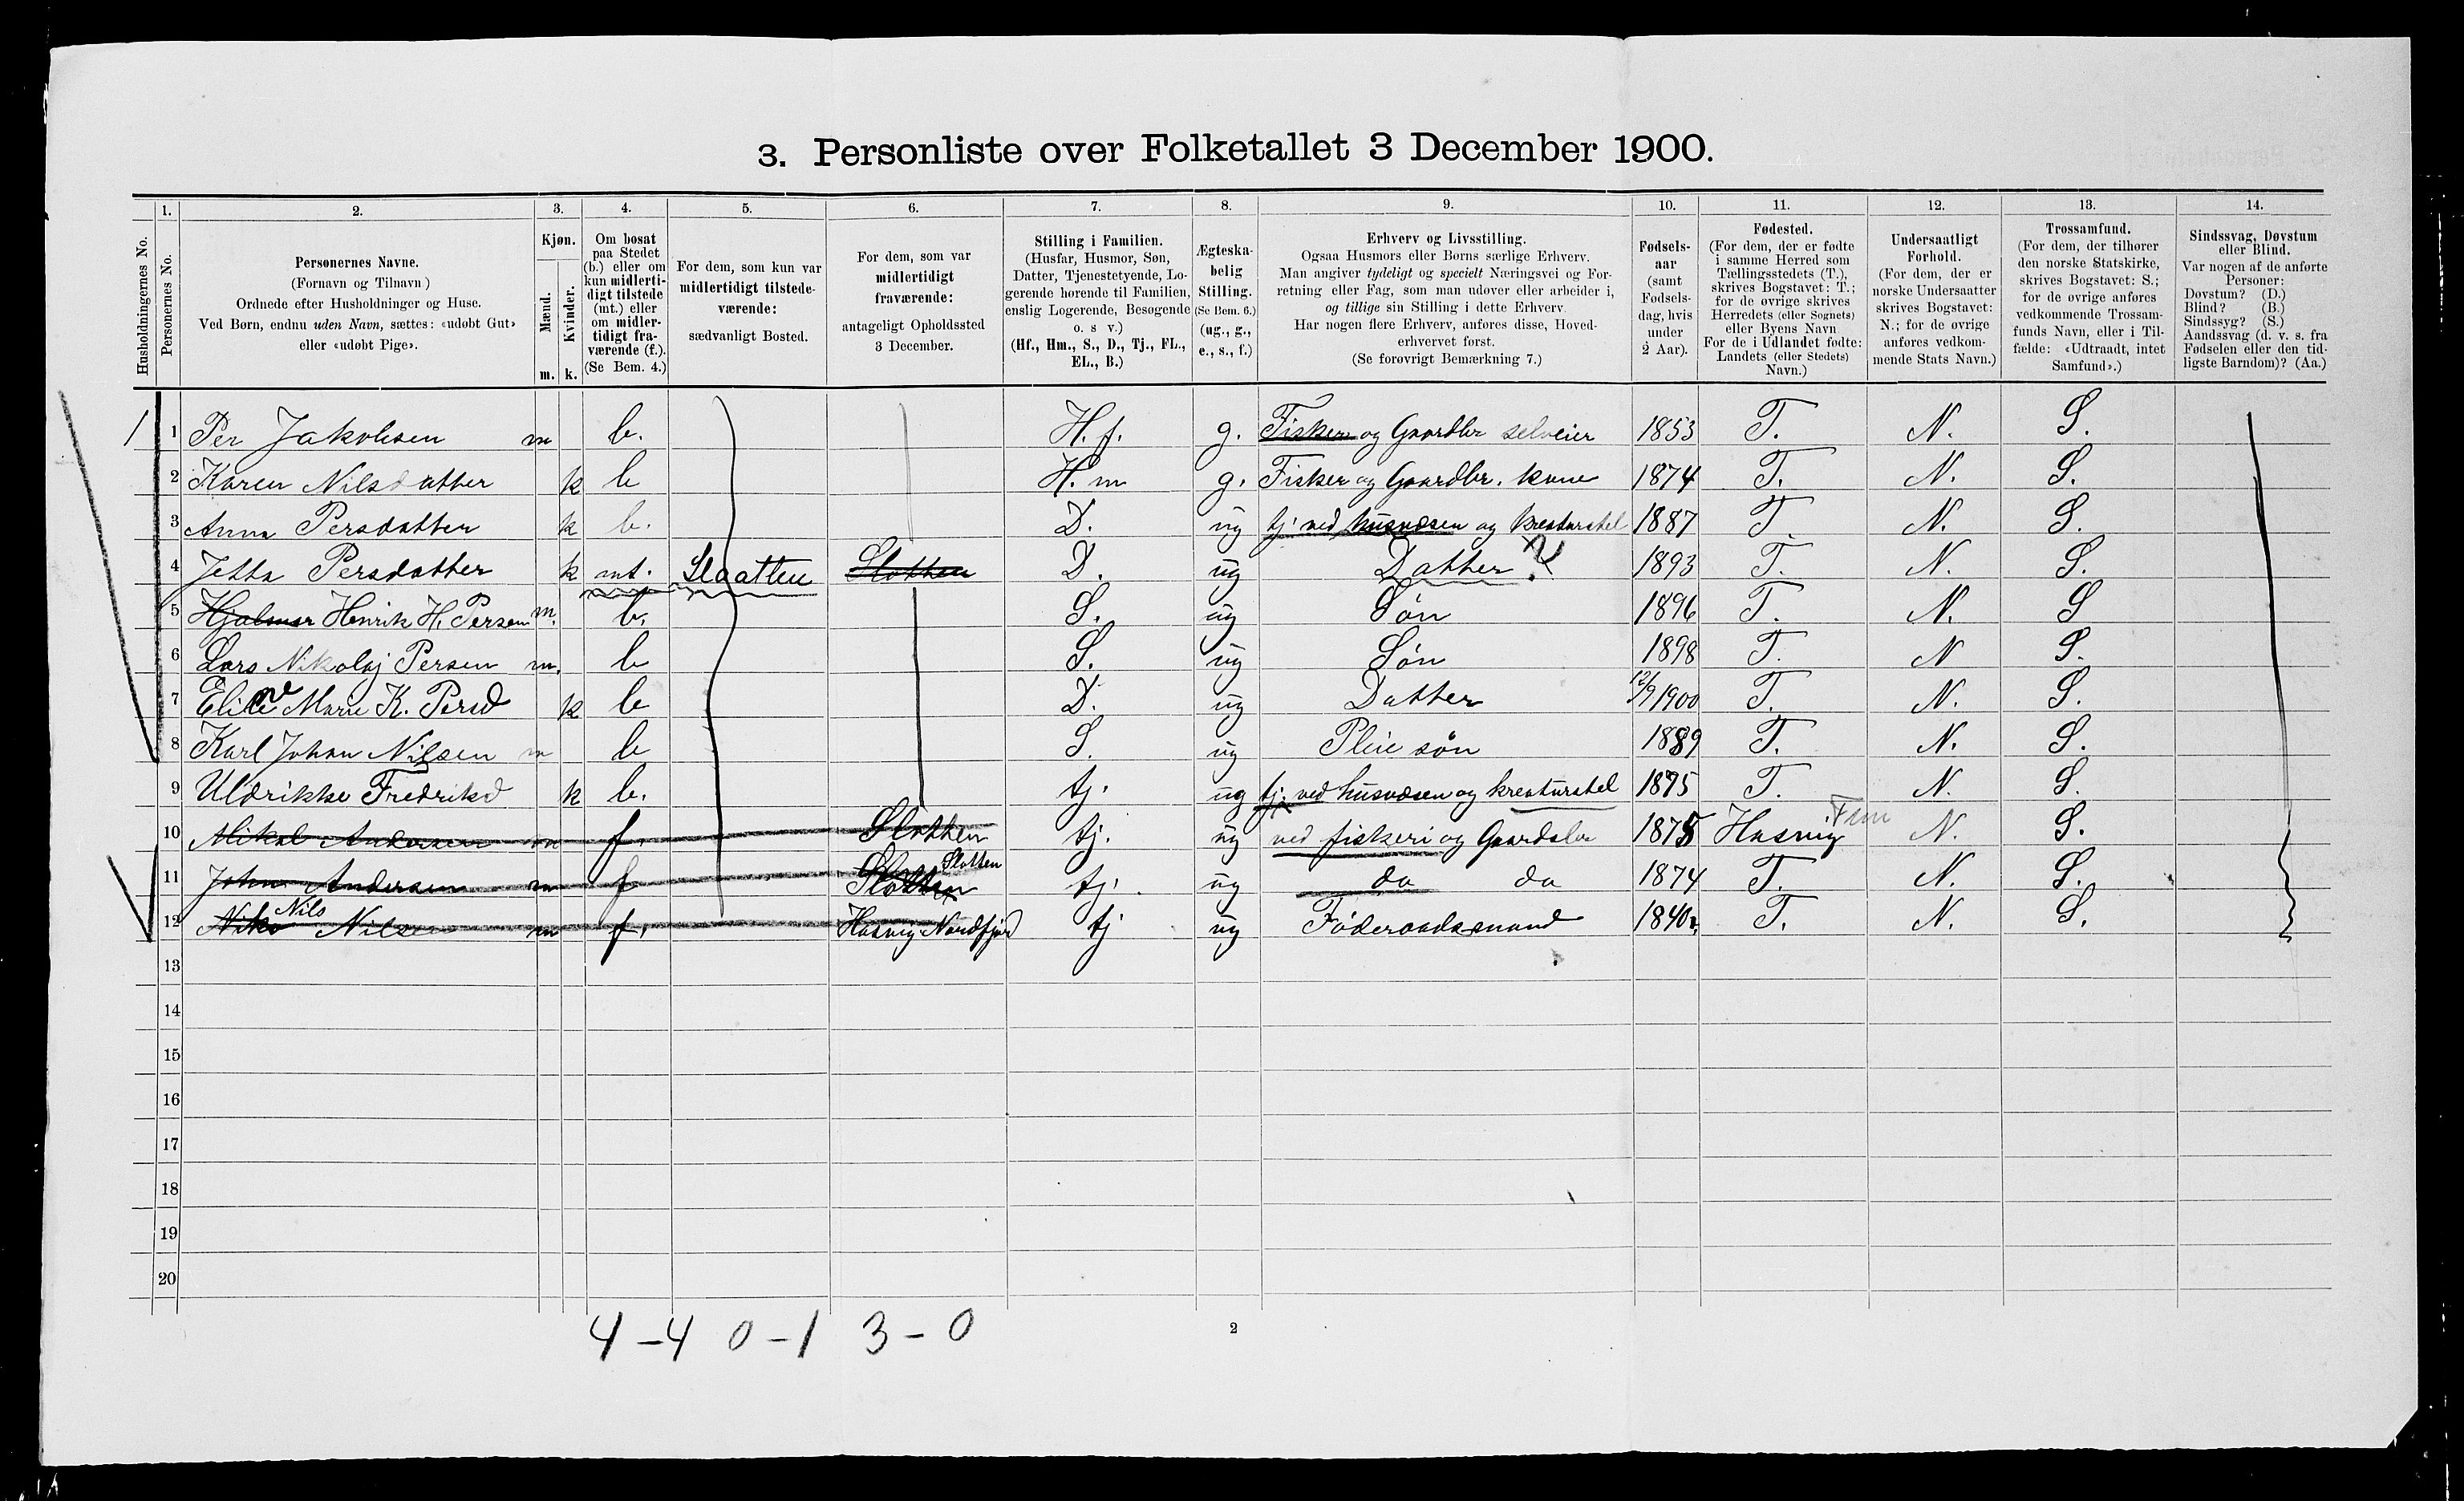 3. Personliste over Folketallet 3 December 1900.
1. 2. 3. 4. 5. 6. 7. 8. 9. 10. 11. 12. 13. 14.
Husholdningernes No.
Personernes No.
Personernes Navne.
(Fornavn og Tilnavn)
Ordnede efter Husholdninger og Huse.
Ved Børn, endnu uden Navn, sættes: «udøbt Gut»
eller «udøbt Pige».
Kjøn.
Mænd.
Kvinder.
m. k.
Om bosat
paa Stedet
(b.) eller om
kun midlerti-
digt tilstede
(mt.) eller
om midler-
tidigt fra-
værende (f.).
(Se Bem. 4.)
For dem, som kun var
midlertidigt tilstede-
værende:
sædvanligt Bosted.
For dem, som var
midlertidigt
fraværende:
antageligt Opholdssted
3 December.
Stilling i Familien.
(Husfar, Husmor, Søn,
Datter, Tjenestetyende, Lo-
gerende hørende til Familien,
enslig Logerende, Besøgende
o. s v.)
(Hf., Hm., S., D., Tj., FL.,
EL., B.)
Ægteska-
belig
Stilling.
(Se Bem. 6.)
(ug., g.,
e., s., f.)
Erhverv og Livsstilling.
Ogsaa Husmors eller Børns særlige Erhverv.
Man angiver tydeligt og specielt Næringsvei og For-
retning eller Fag, som man udøver eller arbeider i,
og tillige sin Stilling i dette Erhverv.
Har nogen flere Erhverv, anføres disse, Hoved-
erhvervet først.
(Se forøvrigt Bemærkning 7.)
Fødsels-
aar
(samt
Fødsels-
dag, hvis
under
2 Aar).
Fødested.
(For dem, der er fødte
i samme Herred som
Tællingsstedets (T.),
skrives Bogstavet: T.;
for de øvrige skrives
Herredets (eller Sognets)
eller Byens Navn
For de i Udlandet fødte:
Landets (eller Stedets)
Navn.)
Undersaatligt
Forhold.
(For dem, der er
norske Undersaatter
skrives Bogstavet:
N.; for de øvrige
anføres vedkom-
mende Stats Navn.)
Trossamfund.
(For dem, der tilhører
den norske Statskirke,
skrives Bogstavet: S.;
for de øvrige anføres
vedkommende Trossam-
funds Navn, eller i Til-
fælde: «Udtraadt, intet
Samfund».)
Sindssvag, Døvstum
eller Blind.
Var nogen af de anførte
Personer:
Døvstum? (D.)
Blind? (B.)
Sindssyg? (S.)
Aandssvag (d. v. s. fra
Fødselen eller den tid-
ligste Barndom)? (Aa.)
1 1 Per Jakobsen m b. H. f. g. Fisker og Gaardbr selveier 1853 T. N. S.
2 Karen Nilsdatter k b H. m g. Fisker og Gaardbr. kone 1874 T. N. S.
3 Anna Persdatter k b. D. ug tj. ved husvæsen og kreaturstel 1887 T N. S.
4 Jetta Persdatter k mt. Slaatten Slotten D. ug Datter ? 1893 T. N. S.
5 Hjalmar Henrik H. Persen m. b. S. ug Søn 1896 T. N. S
6 Lars Nikolaj Persen m. b S. ug Søn 1898 T. N S.
7 Elice Marie K. Persd k b D. ug Datter 12/9 1900 T. N. S.
8 Karl Johan Nilsen m b S. ug Pleie søn 1889 T. N. S.
9 Uldrikke Fredrikd k b. tj. ug tj. ved husvæsen og kreaturstel 1875 T. N. S.
10 Mikal Andersen m f. Slotten tj. ug ved fiskeri og Gaardsbr 1875 Hasvig Finm N. S.
11 John Andersen m f Slotten Slotten tj. ug do do 1874 T. N. S.
12 Niko Nils Nilsen m f. Hasvig Nordfjord tj ug Føderaadsmand 1840. T. N. S.
13
14
15
16
17
18
19
20
4-4 0-1 3-0
2